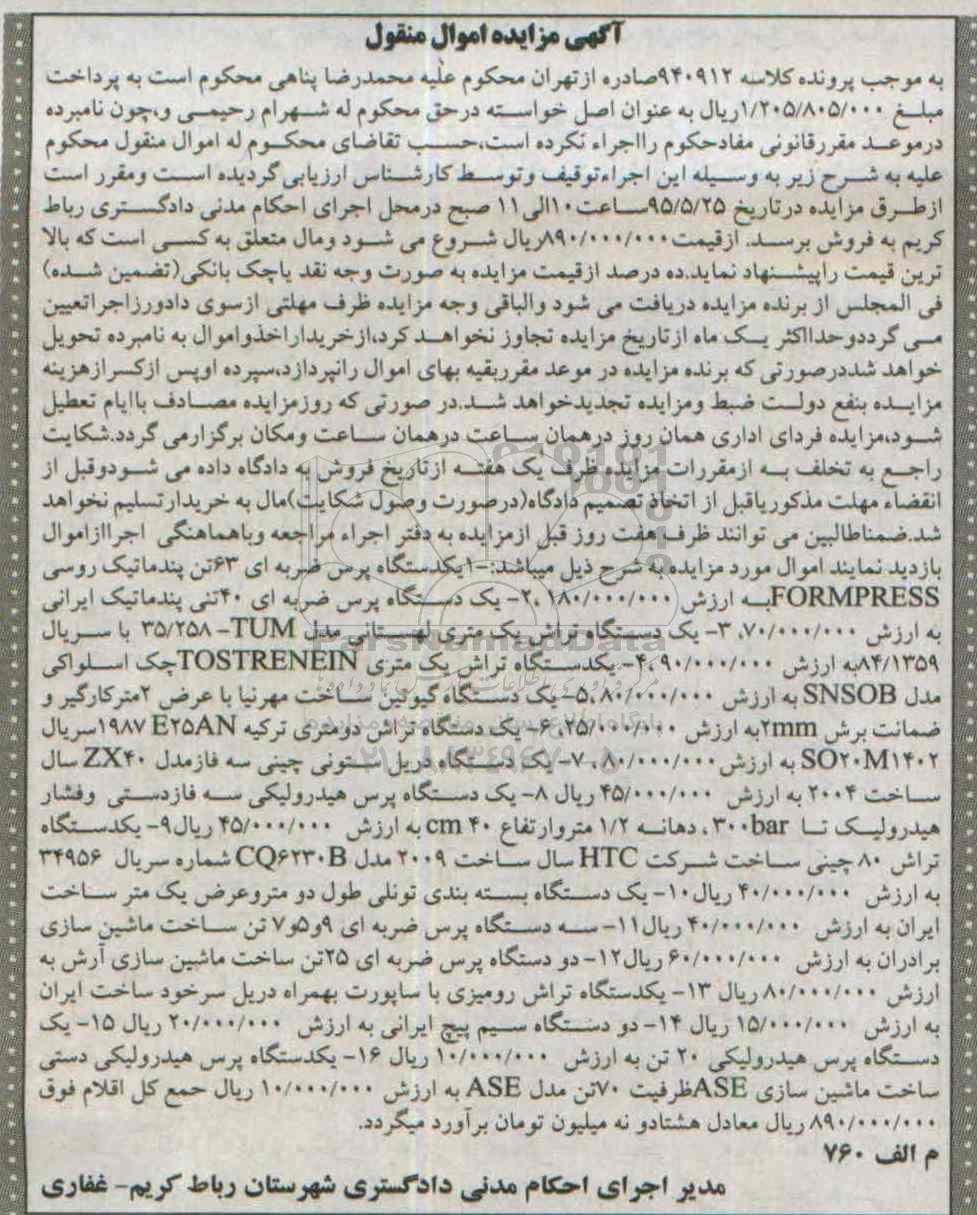 آگهی مزایده اموال منقول
به موجب پرونده کلاسه ۹۴۰۹۱۲صادره ازتهران محکوم علیه محمدرضا پناهی محکوم است به پرداخت
مبلغ ۱/۲۰۵/۸۰۵/۰۰۰ریال به عنوان اصل خواسته درحق محکوم له شهرام رحیمی و،چون نامبرده
درموعد مقررقانونی مفادحکوم رااجراء نکرده است،حسب تقاضای محکوم له اموال منقول محکوم
علیه به شرح زیر به وسیله این اجراءتوقیف وتوسط کارشناس ارزیابی گردیده است ومقرر است
ازطرق مزایده درتاریخ ۹۵/۵/۲۵ساعت۱۰الی۱۱ صبح درمحل اجرای احکام مدنی دادگستری رباط
کریم به فروش برسد. ازقیمت۸۹۰/۰۰۰/۰۰۰ریال شروع می شود ومال متعلق به کسی است که بالا
ترین قیمت راپیشنهاد نماید.ده درصد ازقیمت مزایده به صورت وجه نقد یاچک بانکی(تضمین شده)
فی المجلس از برنده مزایده دریافت می شود والباقی وجه مزایده ظرف مهلتی ازسوی دادورزاجراتعیین
می گرددوحدااکثر یک ماه ازتاریخ مزایده تجاوز نخواهد کرد،ازخریداراخذواموال به نامبرده تحویل
خواهد شددرصورتی که برنده مزایده در موعد مقرربقیه بهای اموال رانپردازد،سپرده اوپس ازکسرازهزینه
مزایده بنفع دولت ضبط ومزایده تجدیدخواهد شد.در صورتی که روزمزایده مصادف باایام تعطیل
شود،مزایده فردای اداری همان روز درهمان ساعت درهمان ساعت ومکان برگزارمی گردد.شکایت
راجع به تخلف به ازمقررات مزایده ظرف یک هفته ازتاریخ فروش به دادگاه داده می شودوقبل از
انقضاء مهلت مذکوریاقبل از اتخاذ تصمیم دادگاه(درصورت وصول شکایت)مال به خریدارتسلیم نخواهد
شد.ضمناطالبین می توانند ظرف هفت روز قبل ازمزایده به دفتر اجراء مراجعه وباهماهنگی اجراازاموال
بازدید نمایند اموال مورد مزایده به شرح ذیل میباشد:-۱یکدستگاه پرس ضربه ای ۶۳تن پندماتیک روسی
FORMPRESSبه ارزش ۱۸۰/۰۰۰/۰۰۰ ،۲- یک دستگاه پرس ضربه ای ۴۰تنی پندماتیک ایرانی
به ارزش ۷۰/۰۰۰/۰۰۰، ۳- یک دستگاه تراش یک متری لهستانی مدل TUM-۳۵/۲۵۸ با سریال
۸۴/۱۳۵۹به ارزش ۹۰/۰۰۰/۰۰۰ ،۴- یکدستگاه تراش یک متری TOSTRENEINچک اسلواکی
مدل SNSOB به ارزش ۸۰/۰۰۰/۰۰۰ ،۵- یک دستگاه گیوتین ساخت مهرنیا با عرض ۲مترکارگیر و
ضمانت برش ۲mmبه ارزش ۲۵/۰۰۰/۰۰۰ ،۶- یک دستگاه تراش دومتری ترکیه E۲۵AN ۱۹۸۷سریال
SO۲۰M۱۴۰۲ به ارزش ۸۰/۰۰۰/۰۰۰ ،۷- یک دستگاه دریل ستونی چینی سه فازمدل ZX۴۰ سال
ساخت ۲۰۰۴ به ارزش ۴۵/۰۰۰/۰۰۰ ریال ۸- یک دستگاه پرس هیدرولیکی سه فازدستی وفشار
هیدرولیک تا ۳۰۰bar، دهانه ۱/۲ متروارتفاع ۴۰ cm به ارزش ۴۵/۰۰۰/۰۰۰ ریال۹- یکدستگاه
تراش ۸۰ چینی ساخت شرکت HTC سال ساخت ۲۰۰۹ مدل CQ۶۲۳۰B شماره سریال ۳۴۹۵۶
به ارزش ۴۰/۰۰۰/۰۰۰ ریال۱۰- یک دستگاه بسته بندی تونلی طول دو متروعرض یک متر ساخت
ایران به ارزش ۴۰/۰۰۰/۰۰۰ ریال۱۱- سه دستگاه پرس ضربه ای ۹و۵و۷ تن ساخت ماشین سازی
برادران به ارزش ۶۰/۰۰۰/۰۰۰ ریال۱۲- دو دستگاه پرس ضربه ای ۲۵تن ساخت ماشین سازی آرش به
ارزش ۸۰/۰۰۰/۰۰۰ ریال ۱۳- یکدستگاه تراش رومیزی با ساپورت بهمراه دریل سرخود ساخت ایران
به ارزش ۱۵/۰۰۰/۰۰۰ ریال ۱۴- دو دستگاه سیم پیچ ایرانی به ارزش ۲۰/۰۰۰/۰۰۰ ریال ۱۵- یک
دستگاه پرس هیدرولیکی ۲۰ تن به ارزش ۱۰/۰۰۰/۰۰۰ ریال ۱۶- یکدستگاه پرس هیدرولیکی دستی
ساخت ماشین سازی ASEظرفیت ۷۰تن مدل ASE به ارزش ۱۰/۰۰۰/۰۰۰ ریال حمع کل اقلام فوق
۸۹۰/۰۰۰/۰۰۰ ریال معادل هشتادو نه میلیون تومان برآورد میگردد.
م الف ۷۶۰
مدیر اجرای احکام مدنی دادگستری شهرستان رباط کریم- غفاری
ParsNamadData